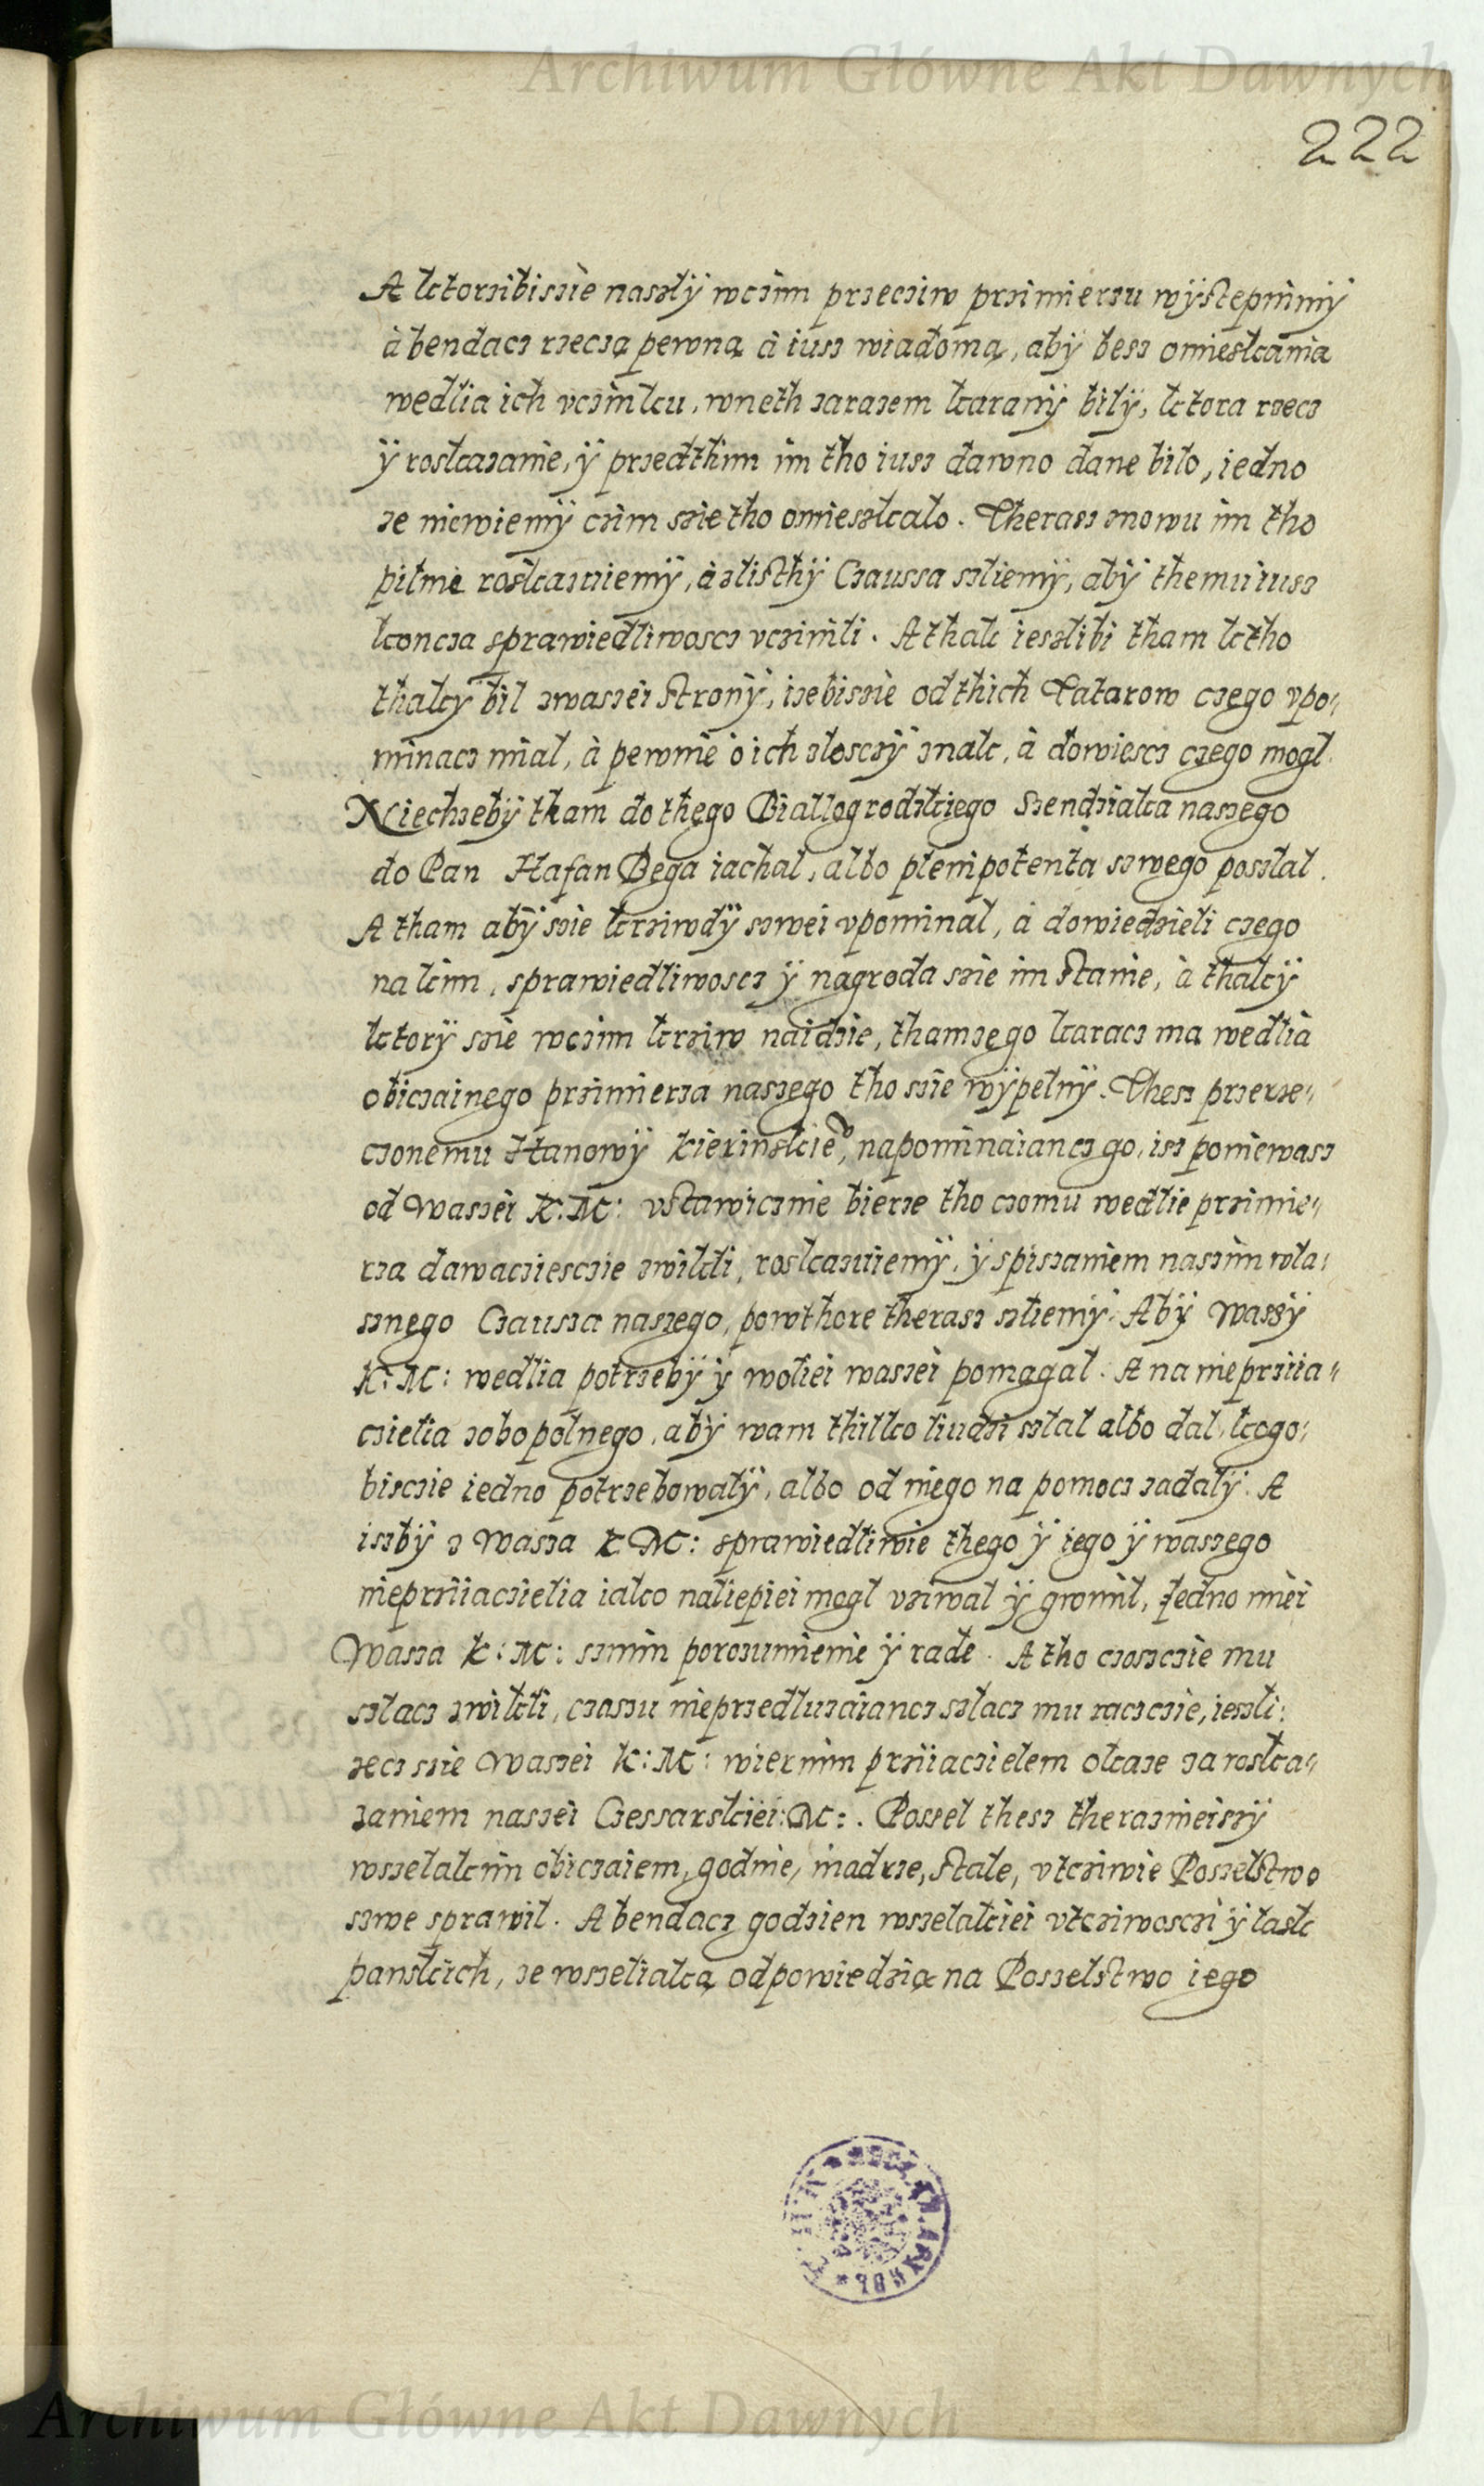 Archiwum Główne Akt Dawnych
222
A ktorzibiszie naszlÿ wczim przecziw przimierzu wÿstepnimÿ
à bendacz rzeczą pewną à iusz wiadomą, abÿ besz omieskania
wedlia ich vczinku, wneth zarazem karanÿ bilÿ, ktora rzecz
ÿ roskazanie, ÿ przedthim im tho iusz dawno dane bilo, iedno
ze niewiemÿ czim szie tho omieszkalo. Therasz znowu im tho
pilnie roskazuiemÿ, à zlisthÿ Czaussa szliemÿ, abÿ themu iusz
koncza sprawiedliwoscz vczinili. A thak ieszlibi tham ktho
thalkÿ bil zwaszei stronÿ, izebiszie od thich Tatarow czego vpo„
minacz mial, à pewnie o ich zlosczÿ znak, à dowiescz czego mogl.
Niechzebÿ tham do thego Biallogrodzkiego Szendziaka naszego
do Pan Hasan Bega iachal, albo plenipotenta szwego poszlal.
A tham abÿ szie krziwdÿ szwei vpominal, à dowiedzieli czego
na kim, sprawiedliwoscz ÿ nagroda szie im stanie, à thalkÿ
ktorÿ szie wczim krziw naidzie, thamzego karacz ma wedlia
obiczainego przimierza naszego tho szie wÿpelnÿ. Thesz przerze„
czonemu Hanowÿ Kierinskieº, napominaiancz go, isz poniewasz
od Waszei K: M: vstawicznie bierze tho czomu wedlie przimie„
rza dawacziesczie zwikli, roskazuiemÿ, ÿ spiszaniem naszim wla„
sznego Czausza naszego, powthore therasz szliemÿ. Abÿ Waszÿ
K: M: wedlia potrzebÿ ÿ woliei waszei pomagal. A na nieprziia„
czielia zobopolnego, abÿ wam thilko liudzi szlal albo dal, kogo„
bisczie iedno potrzebowalÿ, albo od niego na pomocz zadalÿ. A
iszbÿ z Wasza K M: sprawiedliwie thego ÿ iego ÿ waszego
nieprziiaczielia iako naliepiei mogl vziwal ÿ gromil, Jedno miei
Wasza K: M: sznim porozumienie ÿ rade. A tho czosczie mu
szlacz zwikli, czaszu nieprzedluzaiancz szlacz mu raczczie, ieszli„
zecz szie Waszei K: M: wiernim prziiacielem okaze za roska„
zaniem naszei Czessarskiei: M:. Poszel thesz therazmieiszÿ
wszelakim obiczaiem, godnie, madrze, stale, vtcziwie Poszelstwo
szwe sprawil. A bendacz godzien wszelakiei vtcziwosczi ÿ lask
panskich, ze wszeliaką odpowiedzią na Poszelstwo iego
Archiwum Główne Akt Dawnych